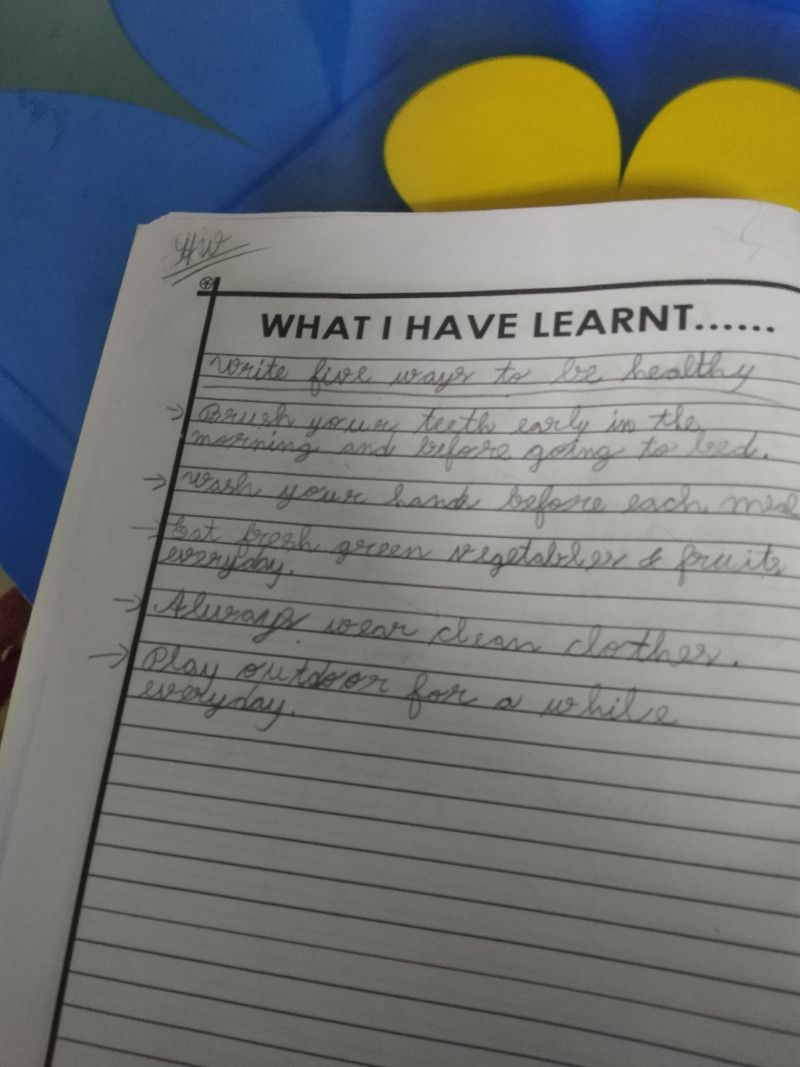 HW
WHAT I HAVE LEARNT......
Write five ways to be healthy
→ Brush your teeth early in the
morning and before going to bed.
→ Wash your hands before each meal
→ Eat fresh green vegetables & fruits
everyday.
→ Always wear clean clothes.
→ Play outdoor for a while
everyday.